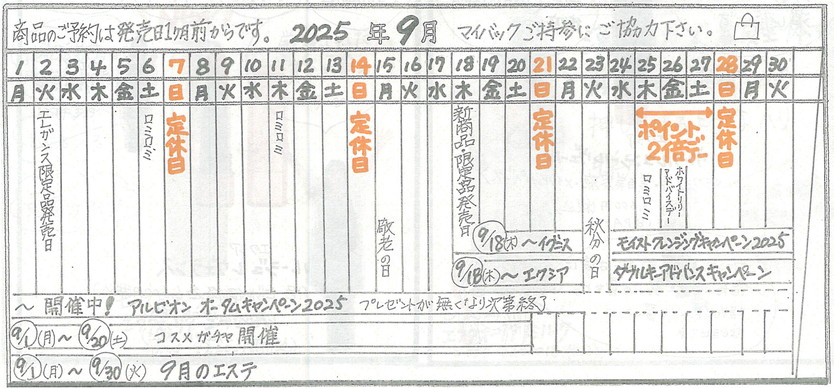 商品のご予約は発売日1ヶ月前からです。 2025年9月 マイバックご持参にご協力下さい。
1 2 3 4 5 6 7 8 9 10 11 12 13 14 15 16 17 18 19 20 21 22 23 24 25 26 27 28 29 30
月 火 水 木 金 土 日 月 火 水 木 金 土 日 月 火 水 木 金 土 日 月 火 水 木 金 土 日 月 火
エレガンス限定品発売日
ロミロミ
定休日
ロミロミ
定休日
敬老の日
新商品・限定品発売日
定休日
秋分の日
ポイント2倍デー
ロミロミ
ホワイトリリーアドバイスデー
定休日
9/18(木)～イグニス
9/18(木)～エクシア
モイストクレンジングキャンペーン2025
ダブルキーアドバンスキャンペーン
～開催中! アルビオン オータムキャンペーン2025 プレゼントが無くなり次第終了
9/1(月)～9/20(土) コスメガチャ開催
9/1(月)～9/30(火) 9月のエステ